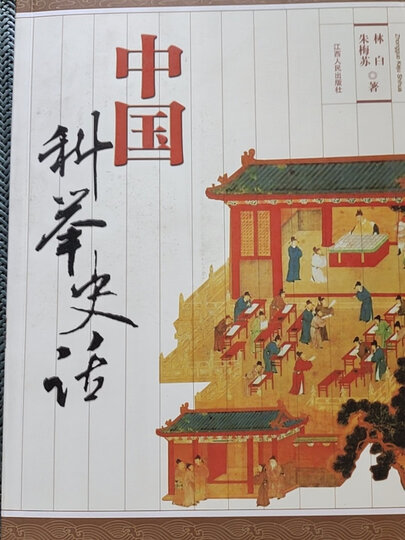 中国
科举史话
林白
朱梅苏◎著
江西人民出版社
Zhongguo Keju Shihua